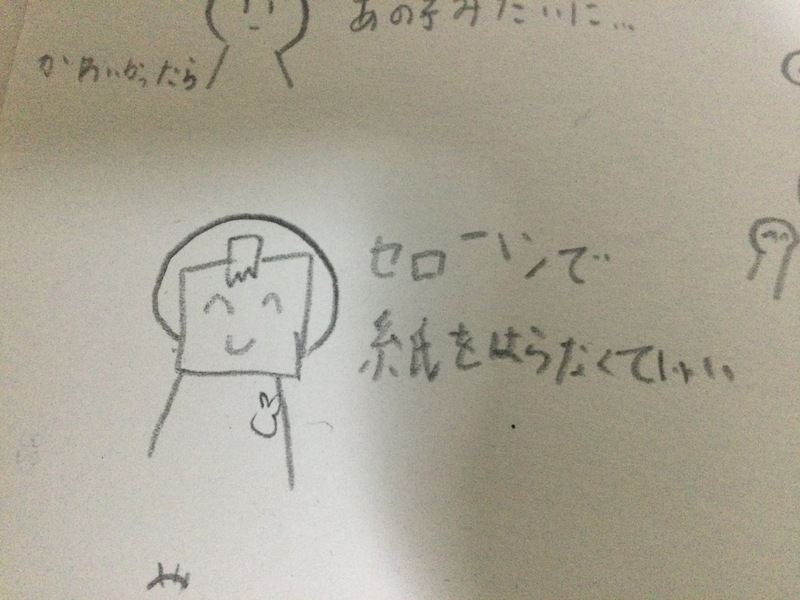 あの子みたいに…
かわいかったら
セローハンで
紙をはらなくていい